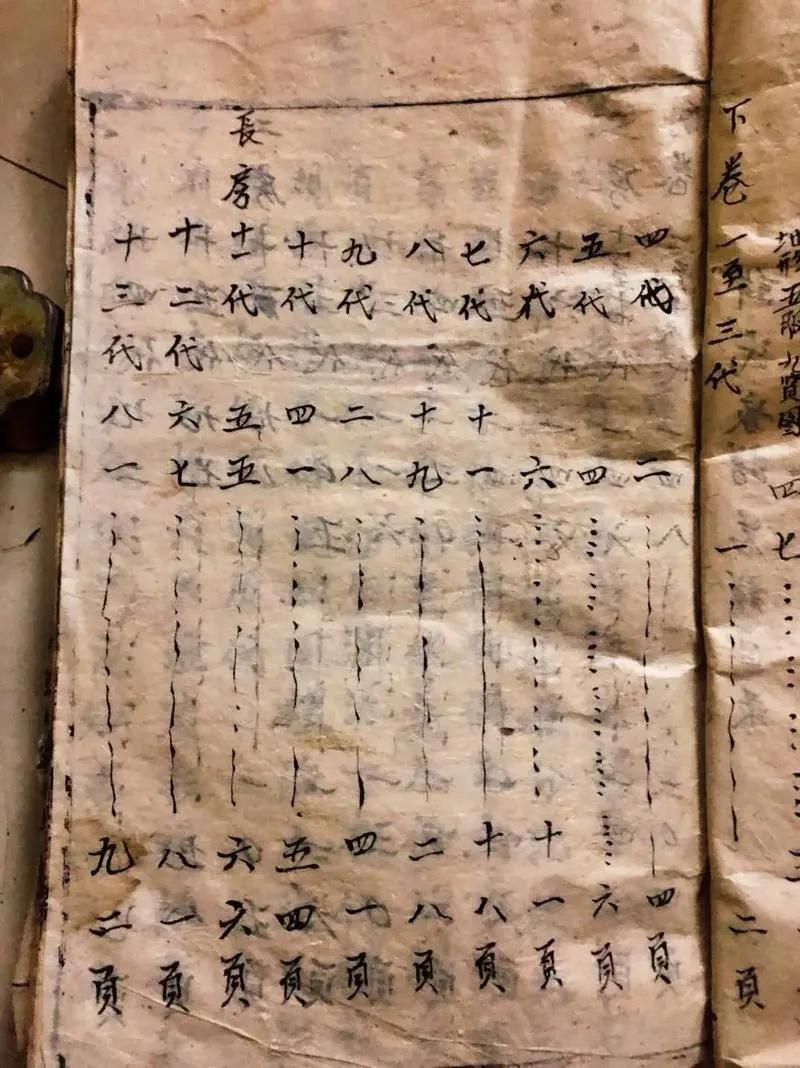 地形五服九賢圖 四七……
下卷 一至三代 一……二頁
四代 二……四頁
五代 四……六頁
六代 六……十一頁
七代 十一……十八頁
八代 十九……二八頁
九代 二八……四十頁
十代 四一……五四頁
長房 十一代 五五……六六頁
十二代 六七……八一頁
十三代 八一……九二頁